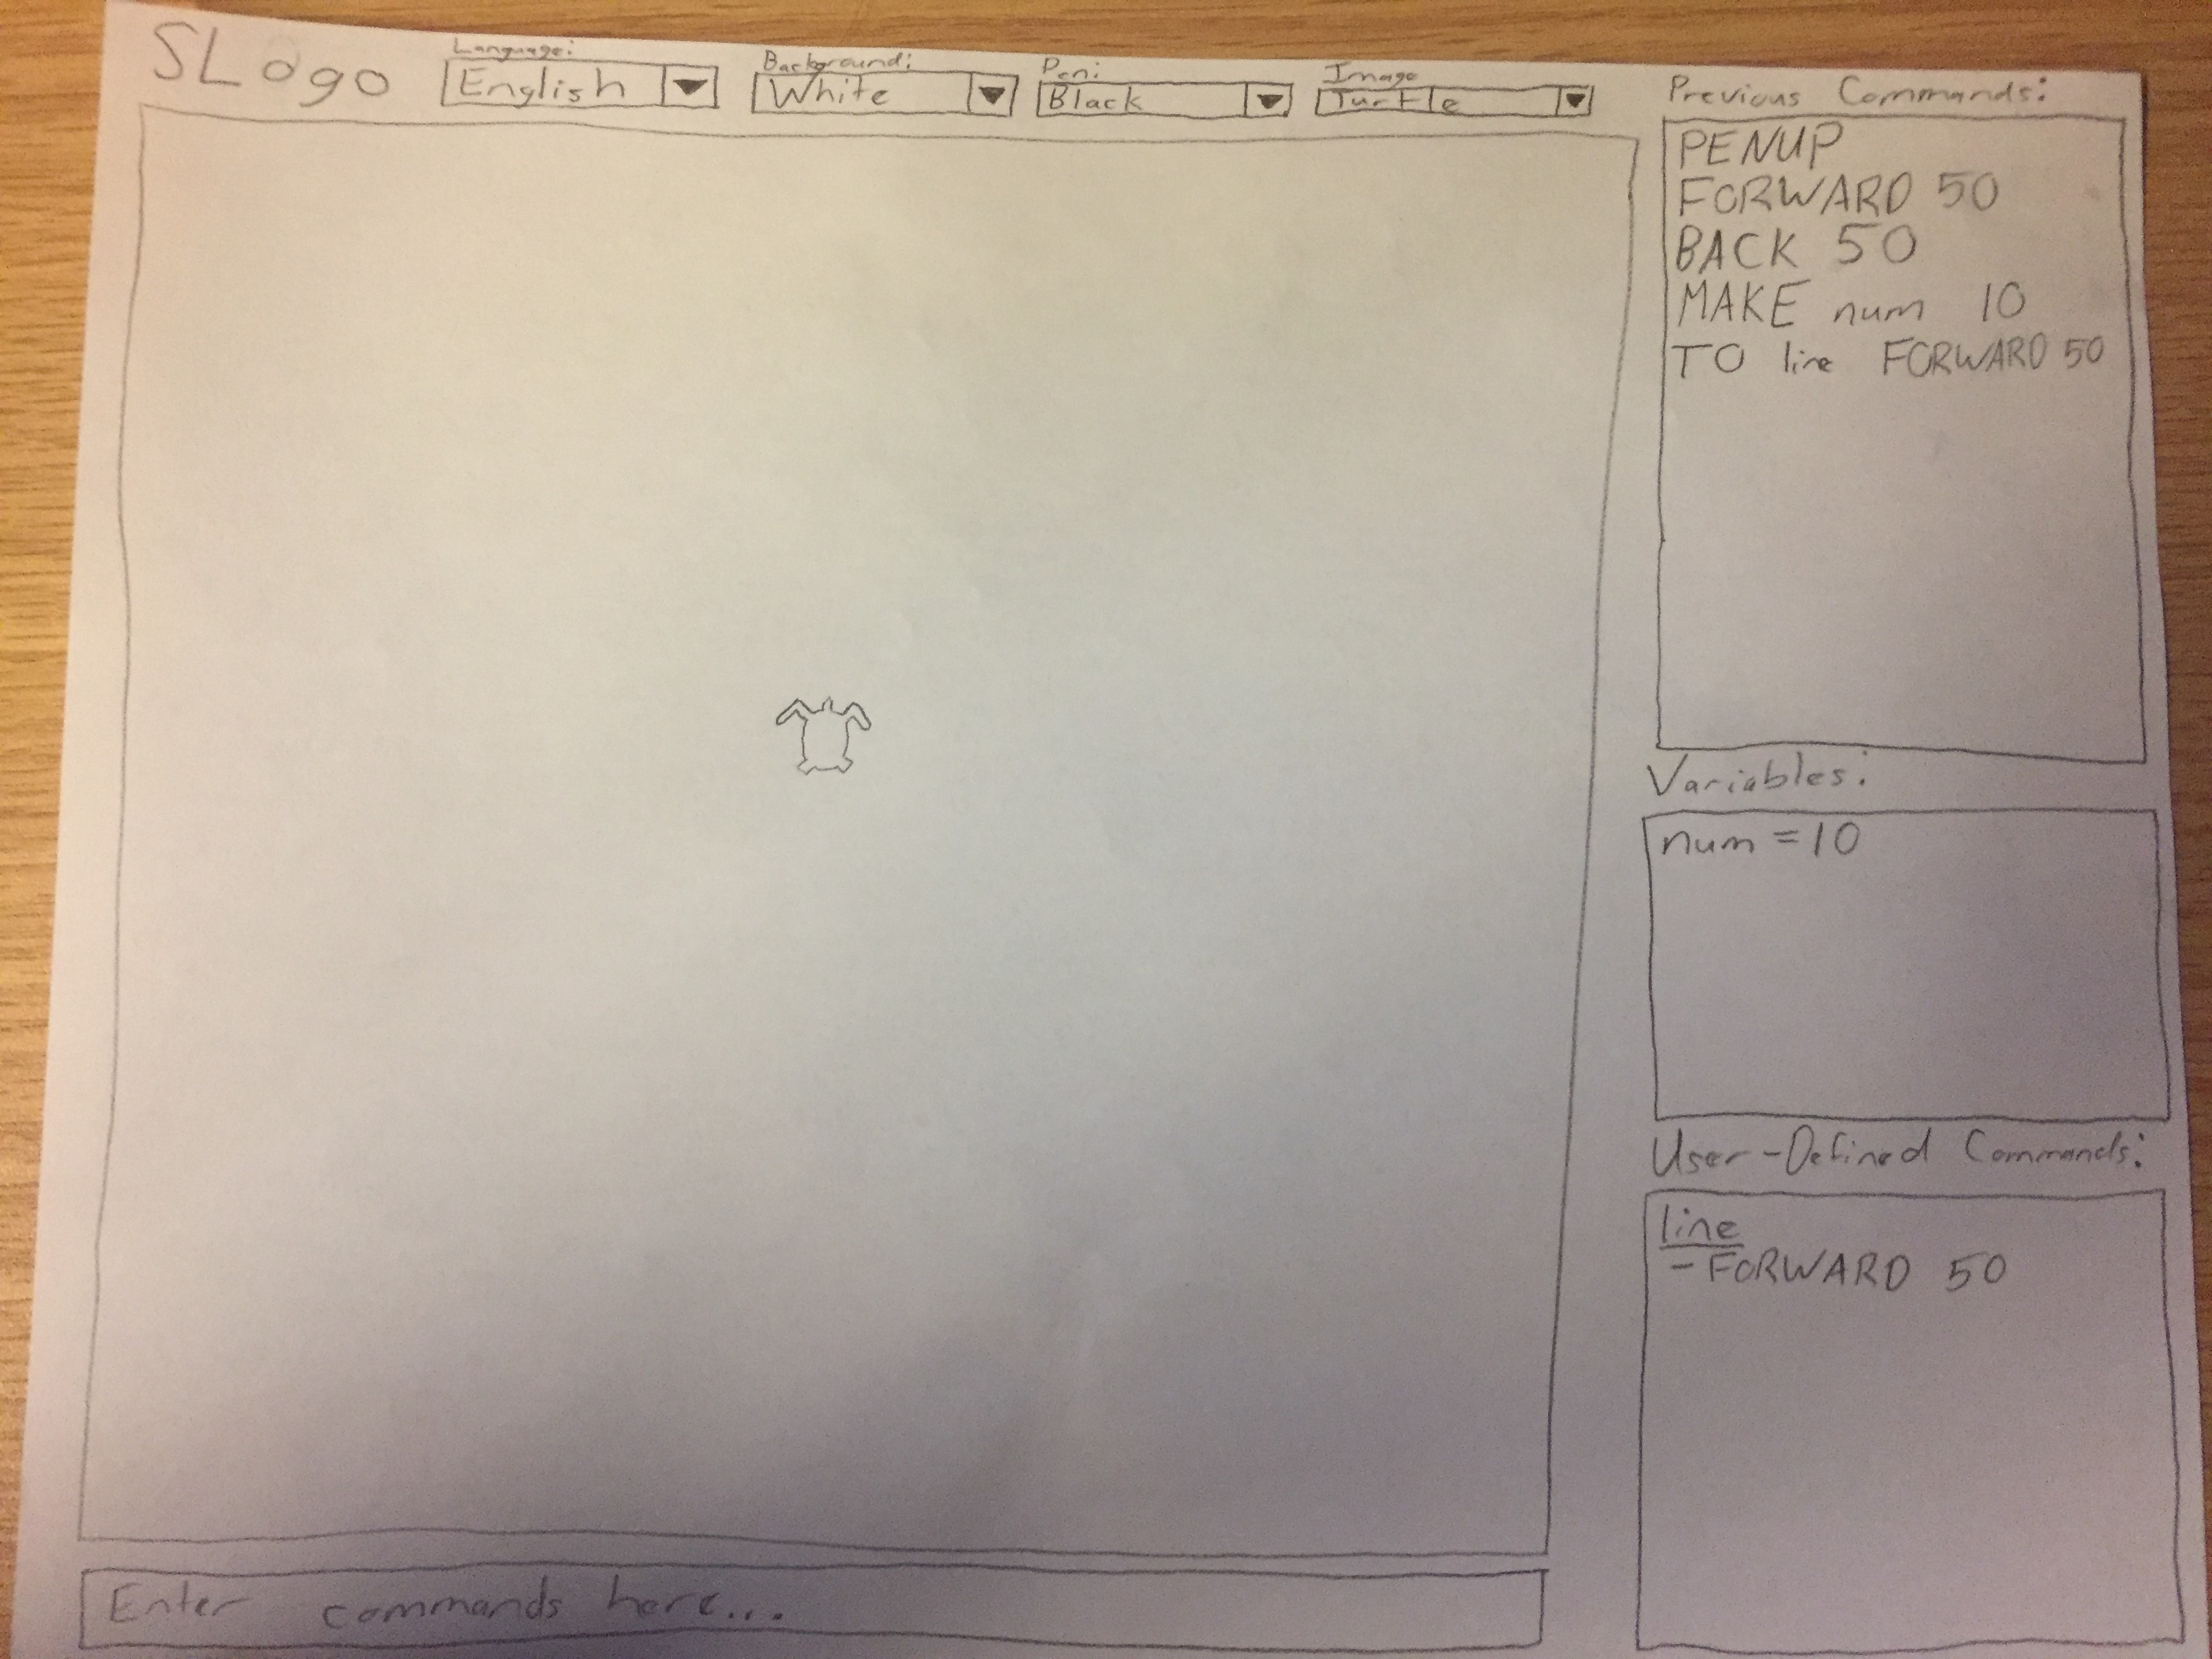 SLogo
Language:
English
Background:
White
Pen:
Black
Image
Turtle
Previous Commands:
PENUP
FORWARD 50
BACK 50
MAKE num 10
TO line FORWARD 50
Variables:
num = 10
User-Defined Commands:
line
- FORWARD 50
Enter commands here...